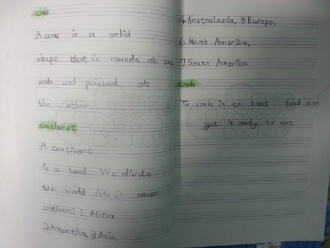 cone
A cone is a solid
shape that is rounds at one
end and poined at
the other
continent
A continent
is a land We divide
the world into seven
continent: 1. Africa
2. Antarctica, 3. Asia
4. Australasia, 5. Europe,
6. North America,
7. South America
cook
To cook is to heat food and
get it ready to eat